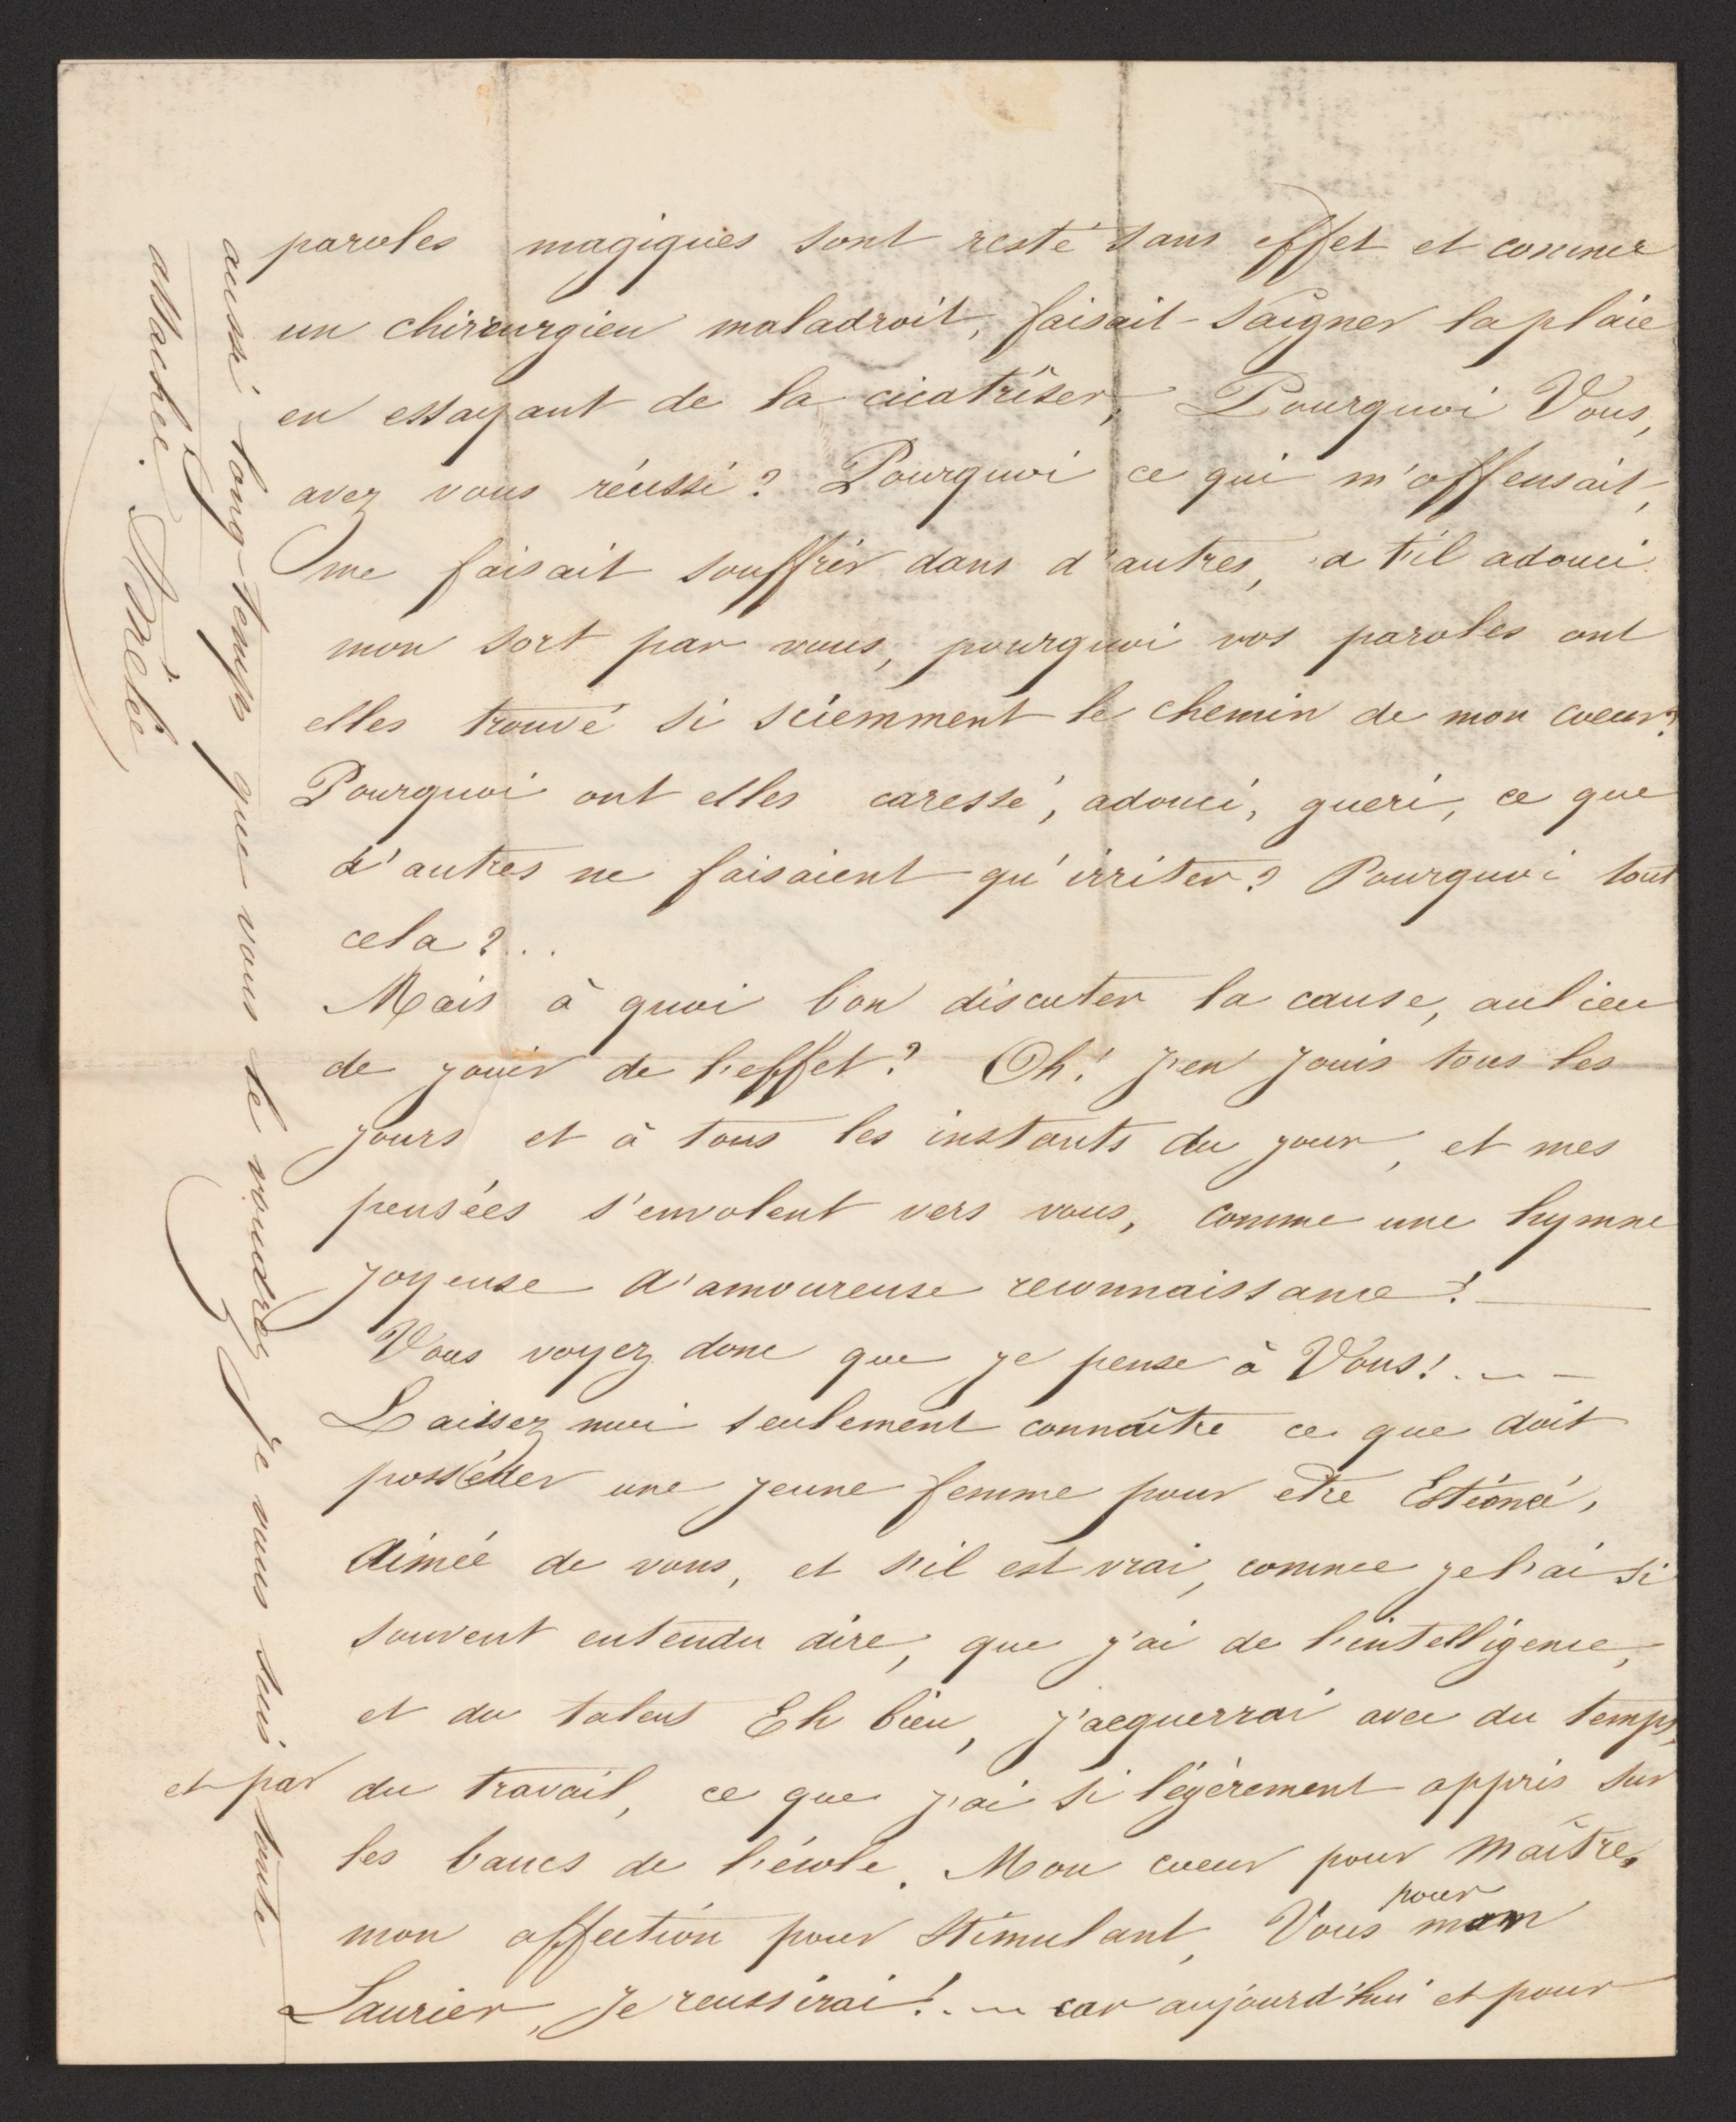 paroles magiques sont resté sans effet et comme
un chirourgien maladroit, faisait saigner la plaie
en essayant de la cicatriser, Pourquoi Vous,
avez vous réussi? Pourquoi ce qui m'offensait,
me faisait souffrir dans d'autres, a t'il adouci
mon sort par vous, pourquoi vos paroles ont
elles trouvé si sciemment le chemin de mon coeur?
Pourquoi ont elles caressé, adouci, gueri, ce que
d'autres ne faisaient qu'irriter? Pourquoi tout
cela?..
Mais à quoi bon discuter la cause, aulieu
de jouir de l'effet? Oh! j'en jouis tous les
jours et à tous les instants du jour, et mes
pensées s'envolent vers vous, comme une hymne
joyeuse d'amoureuse reconnaissance!
Vous voyez donc que je pense à Vous!...
Laissez moi seulement connaître ce que doit
posséder une jeune femme pour etre Estimé,
Aimée de vous, et s'il est vrai, comme je l'ai si
souvent entendu dire, que j'ai de l'intelligence,
et du talent Eh bien, j'acquerrai avec du temps,
et par du travail, ce que j'ai si légèrement appris sur
les bancs de l'école. Mon coeur pour Maître,
mon affection pour stimulant, Vous pour mon
Laurier, je reussirai!.. car aujourd'hui et pour
aussi long-temps que vous le voudrez je vous suis toute
attachée. Aurélie